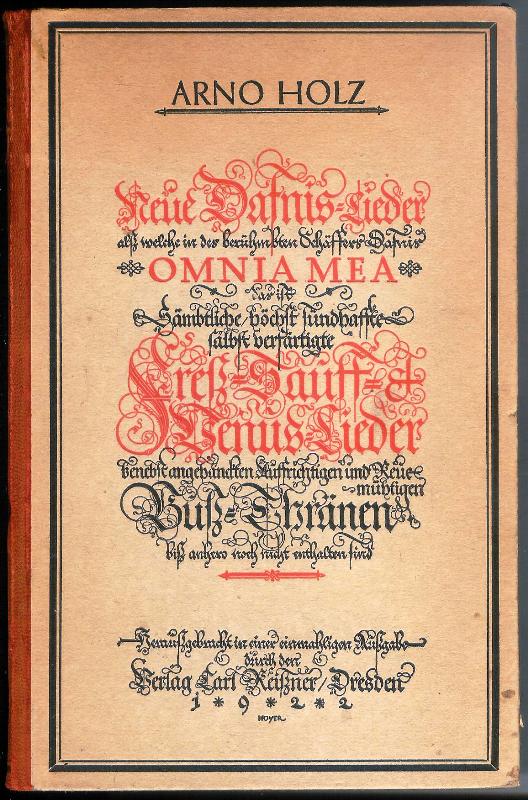 ARNO HOLZ
Neue Dafnis-Lieder
alß welche in des berühmbten Schäffers Dafnis
OMNIA MEA
das ist
Sämbtliche / höchst sündhaffte
sälbst verfärtigte
Freß-Sauff-&
Venus-Lieder
benebst angehänckten Auffrichtigen und Reue-
mühtigen
Buß-Thränen
biß anhero noch nicht enthalten sind
Heraußgebracht in einer einmahligen Außgabe
durch den
Verlag Carl Reißner / Dresden
1*9*2*2
HOYER